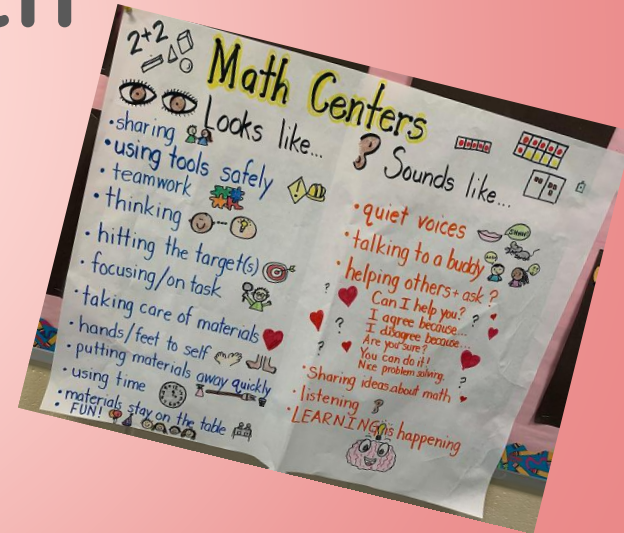 2+2
Math Centers
Looks like...
• sharing
• using tools safely
• teamwork
• thinking
• hitting the target(s)
• focusing/on task
• taking care of materials
• hands/feet to self
• putting materials away quickly
• using time
• materials stay on the table
• FUN!
Sounds like...
• quiet voices
• talking to a buddy
• helping others + ask ?
Can I help you?
I agree because...
I disagree because...
Are you sure?
You can do it!
Nice problem solving.
• Sharing ideas about math
• listening
• LEARNING is happening